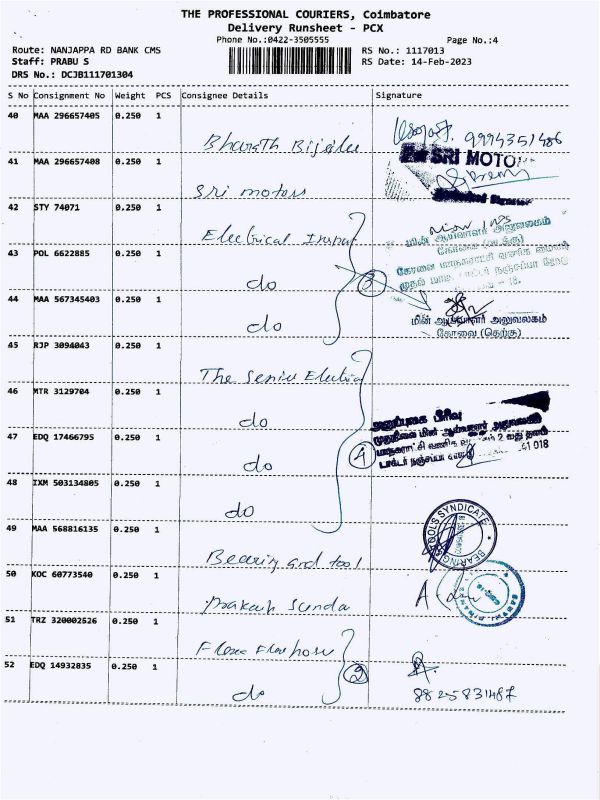 THE PROFESSIONAL COURIERS, Coimbatore
Delivery Runsheet - PCX
Phone No.:0422-3505555
Page No.:4
Route: NANJAPPA RD BANK CMS
RS No.: 1117013
Staff: PRABU S
RS Date: 14-Feb-2023
DRS No.: DCJB111701304
S No Consignment No Weight PCS Consignee Details Signature
40 MAA 296657405 0.250 1
Bharath Bijelee 9994351486
41 MAA 296657408 0.250 1
SRI MOTO
Sri motors
42 STY 74071 0.250 1
Electrical Inspat
மின் ஆய்வாளர் அலுவலகம்
கோவை (வடக்கு)
43 POL 6622885 0.250 1
கோவை மாநகராட்சி வணிக
do 3
44 MAA 567345403 0.250 1
do
மின் ஆய்வாளர் அலுவலகம்
கோவை (தெற்கு)
45 RJP 3094043 0.250 1
The Senior Electrica
46 MTR 3129704 0.250 1
do
அனுப்புகை பிரிவு
முதுநிலை மின் ஆய்வாளர் அலுவலகம்
47 EDQ 17466795 0.250 1
மாநகராட்சி வணிக 2 வது தளம்
do 4
டாக்டர் நஞ்சப்பா 641 018
48 IXM 503134805 0.250 1
do
49 MAA 568816135 0.250 1
TOOLS SYNDICATE
BEARING
Bearing and tool
50 KOC 60773540 0.250 1
Prakash Sunda
51 TRZ 320002526 0.250 1
52 EDQ 14932835 0.250 1
do 2
8825831487